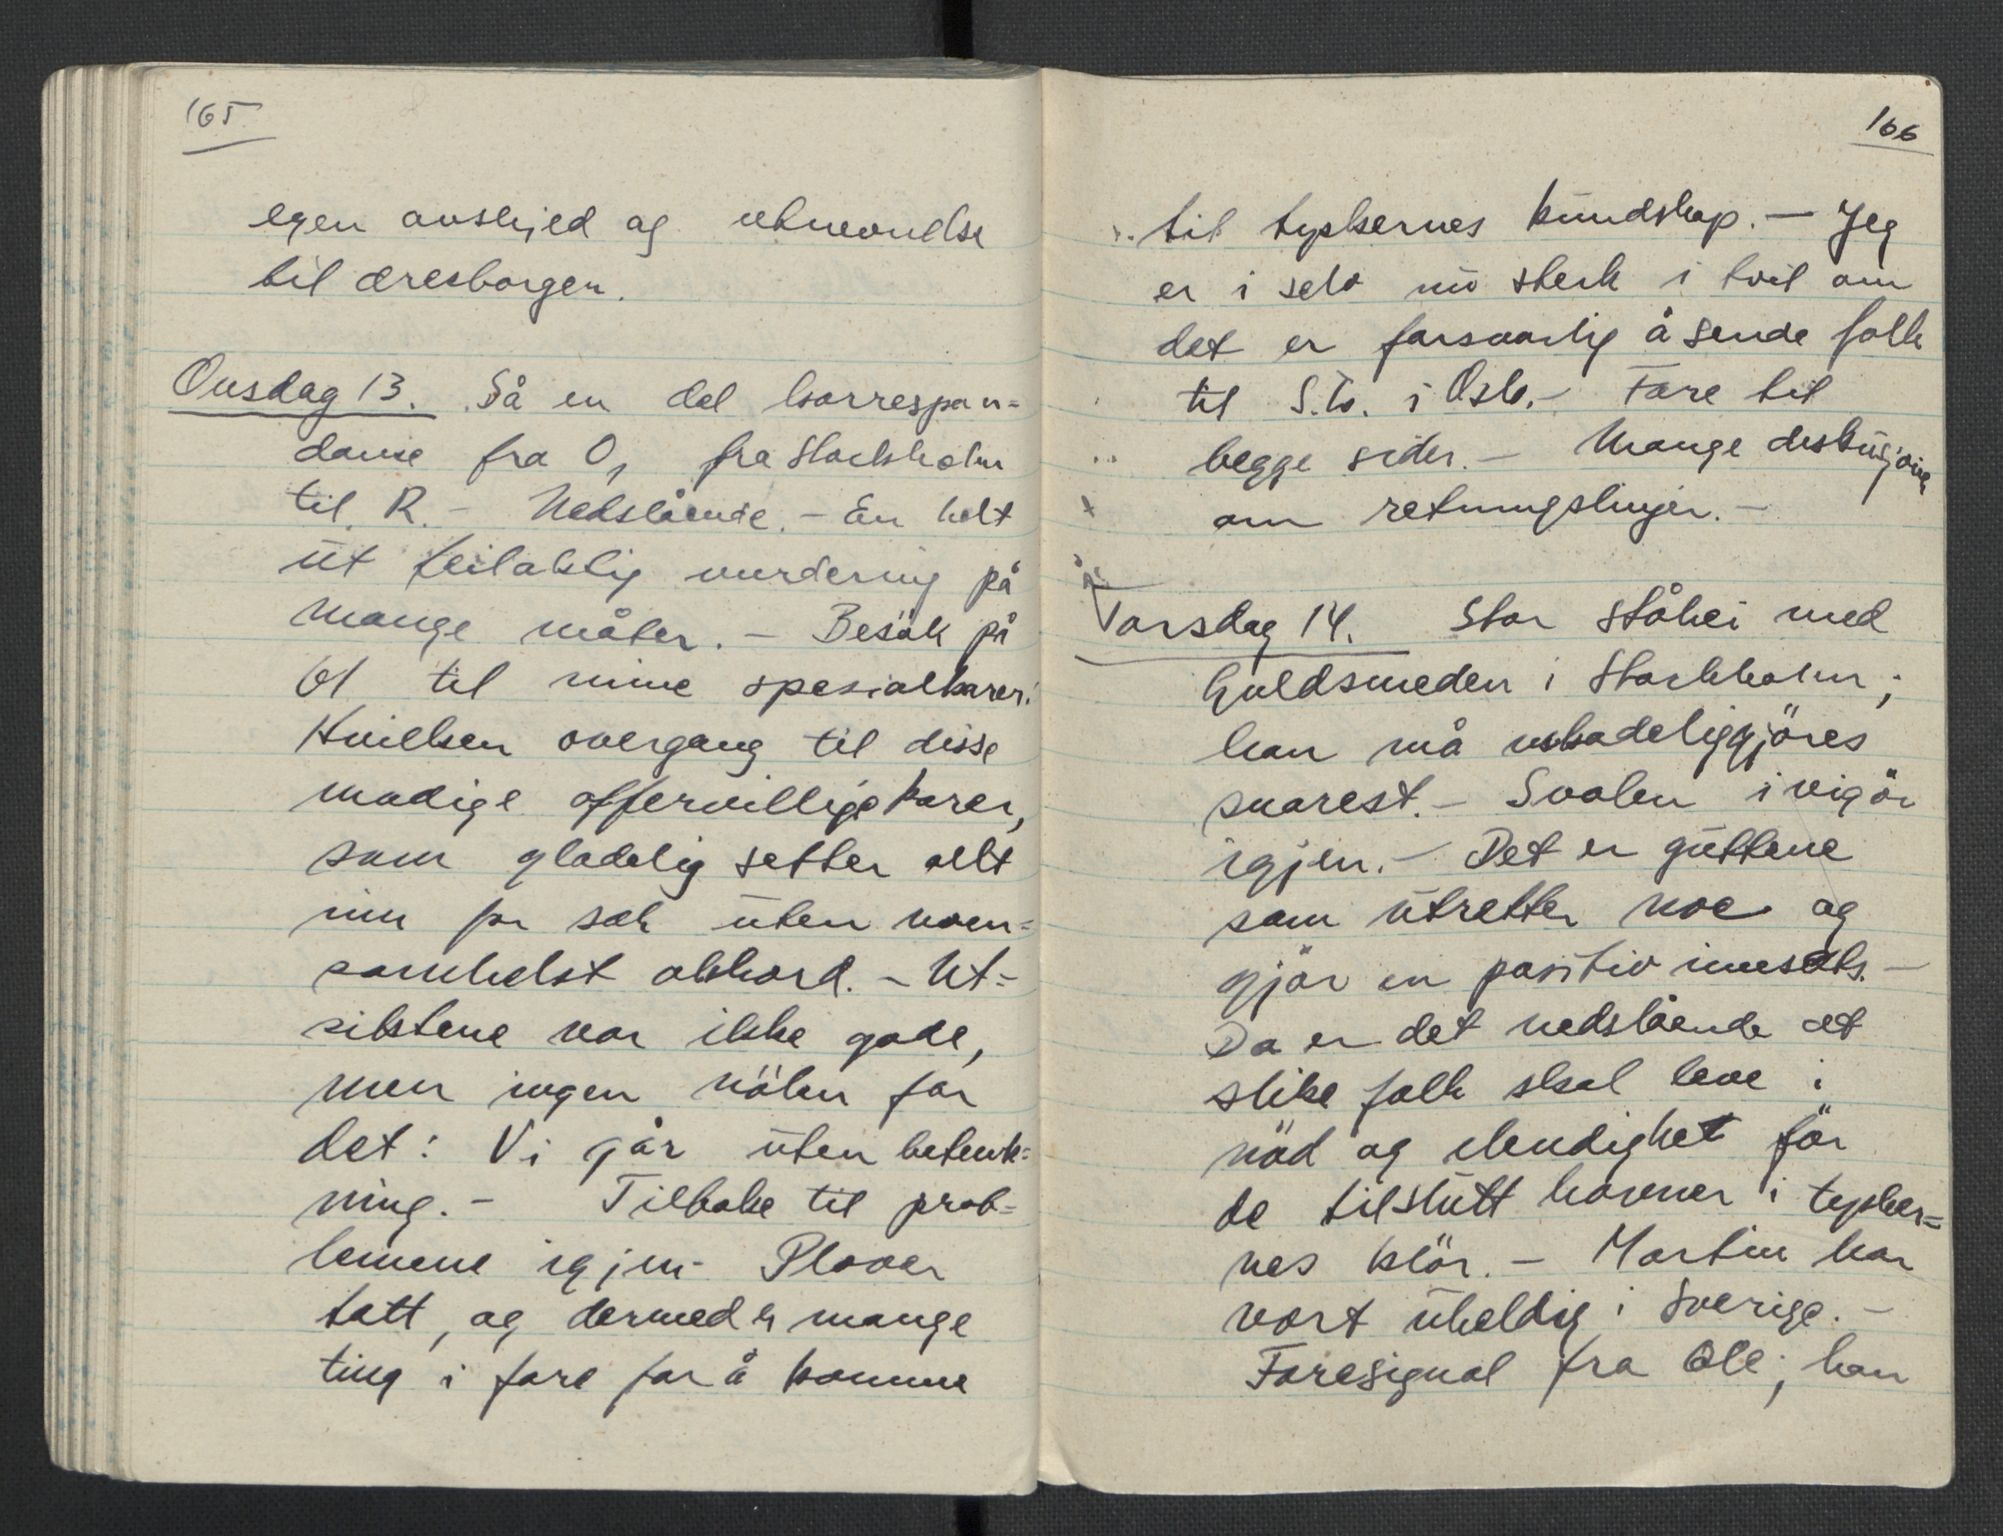 165
egen avskjed og utnevnelse
til æresborger.
Onsdag 13. Så en del korrespon=
danse fra O, fra Stockholm
til R. - Nedslående. - En helt
ut feilaktig vurdering på
mange måter. - Besøk på
61 til mine spesialkarer.
Hvilken overgang til disse
modige offervillige karer,
som gladelig setter alt
inn for sak uten noen=
somhelst akkord. - Ut=
siktene var ikke gode,
men ingen nölen for
det: Vi går uten betenk=
ning. - Tilbake til prob=
lemene igjen - Plover
tatt, og dermed er mange
ting i fare for å komme
166
til tyskernes kundskap. - Jeg
er i selv nu sterk i tvil om
det er forsvarlig å sende folk
til S.B. i Oslo. - Fare til
begge sider. - Mange diskusjoner
om retningslinjer. -
Torsdag 14. Stor ståhei med
Guldsmeden i Stockholm;
han må uskadeliggjöres
snarest. - Svalen i vigör
igjen. - Det er guttene
som utretter noe og
gjör en positiv innsats. -
Da er det nedslående at
slike folk skal leve i
nöd og elendighet för
de tilslutt havner i tysker=
nes klör. - Martin har
vært uheldig i Sverige. -
Faresignal fra Ole; han